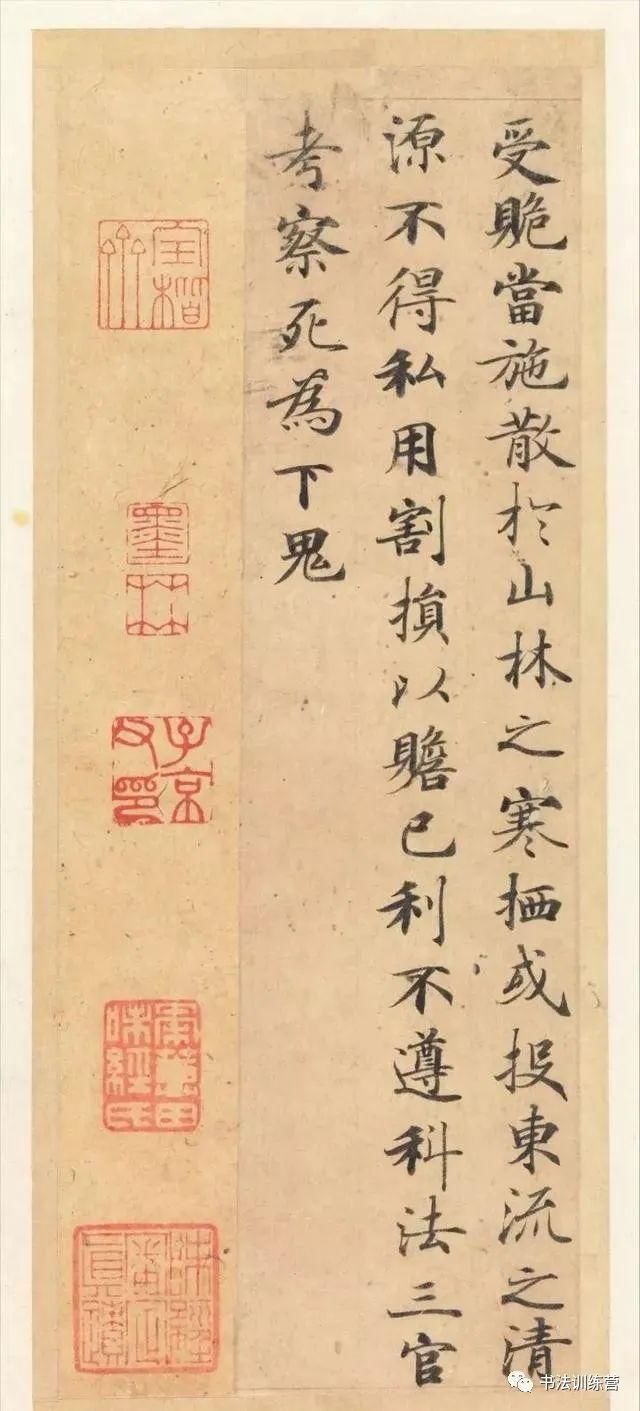 受䞈當施散於山林之寒栖或投東流之清
源不得私用割損以贍己利不遵科法三官
考察死為下鬼
子京父印
书法训练营